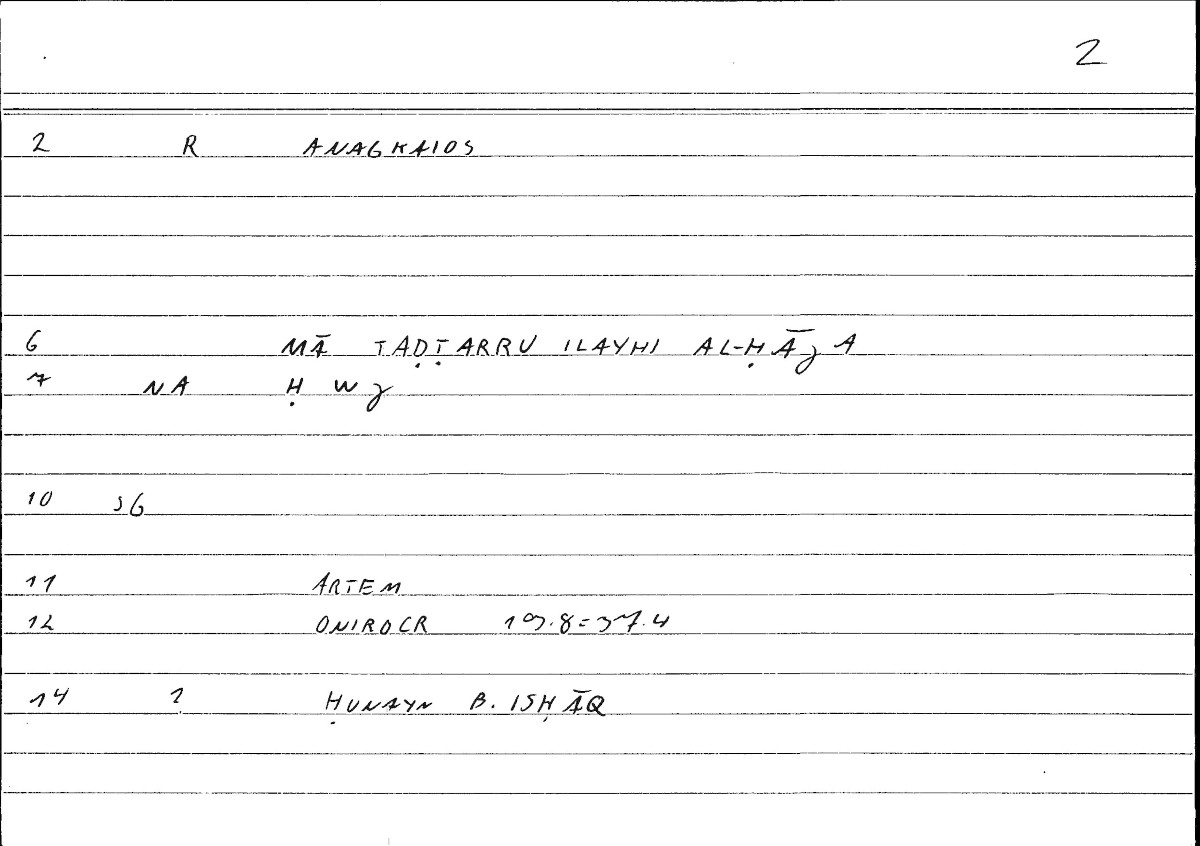 2
2 R ANAGKAIOS
6 MĀ TAḌṬARRU ILAYHI AL-ḤĀȷA
7 NA Ḥ W ȷ
10 SG
11 ARTEM
12 ONIROCR 19.8=37.4
14 ? ḤUNAYN B. ISḤĀQ